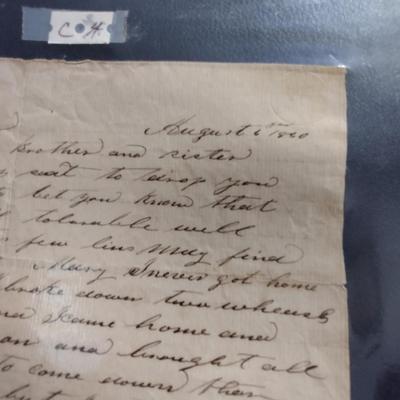 C H.
August 6th 1860
brother and sister
seat to drop you
let you know that
tolarable well
few lins may find
Mary I never got home
broke down two wheels
and I came home and
on and brought all
to come down than
but